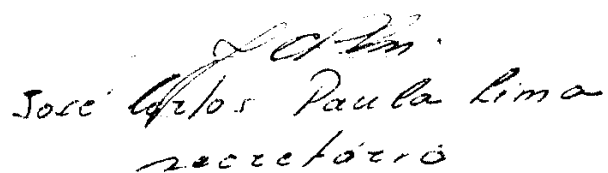 José Carlos Paula Lima
secretário